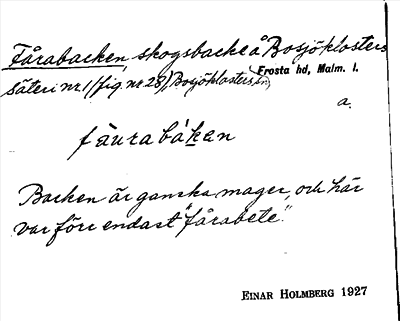 Fårabacken, skogsbacke å Bosjöklosters
säteri nr 1 (fig. nr. 28), Bosjöklosters sn, Frosta hd, Malm. l.
a.
fåurabáken
Backen är ganska mager, och här
var förr endast "fårabete".
EINAR HOLMBERG 1927